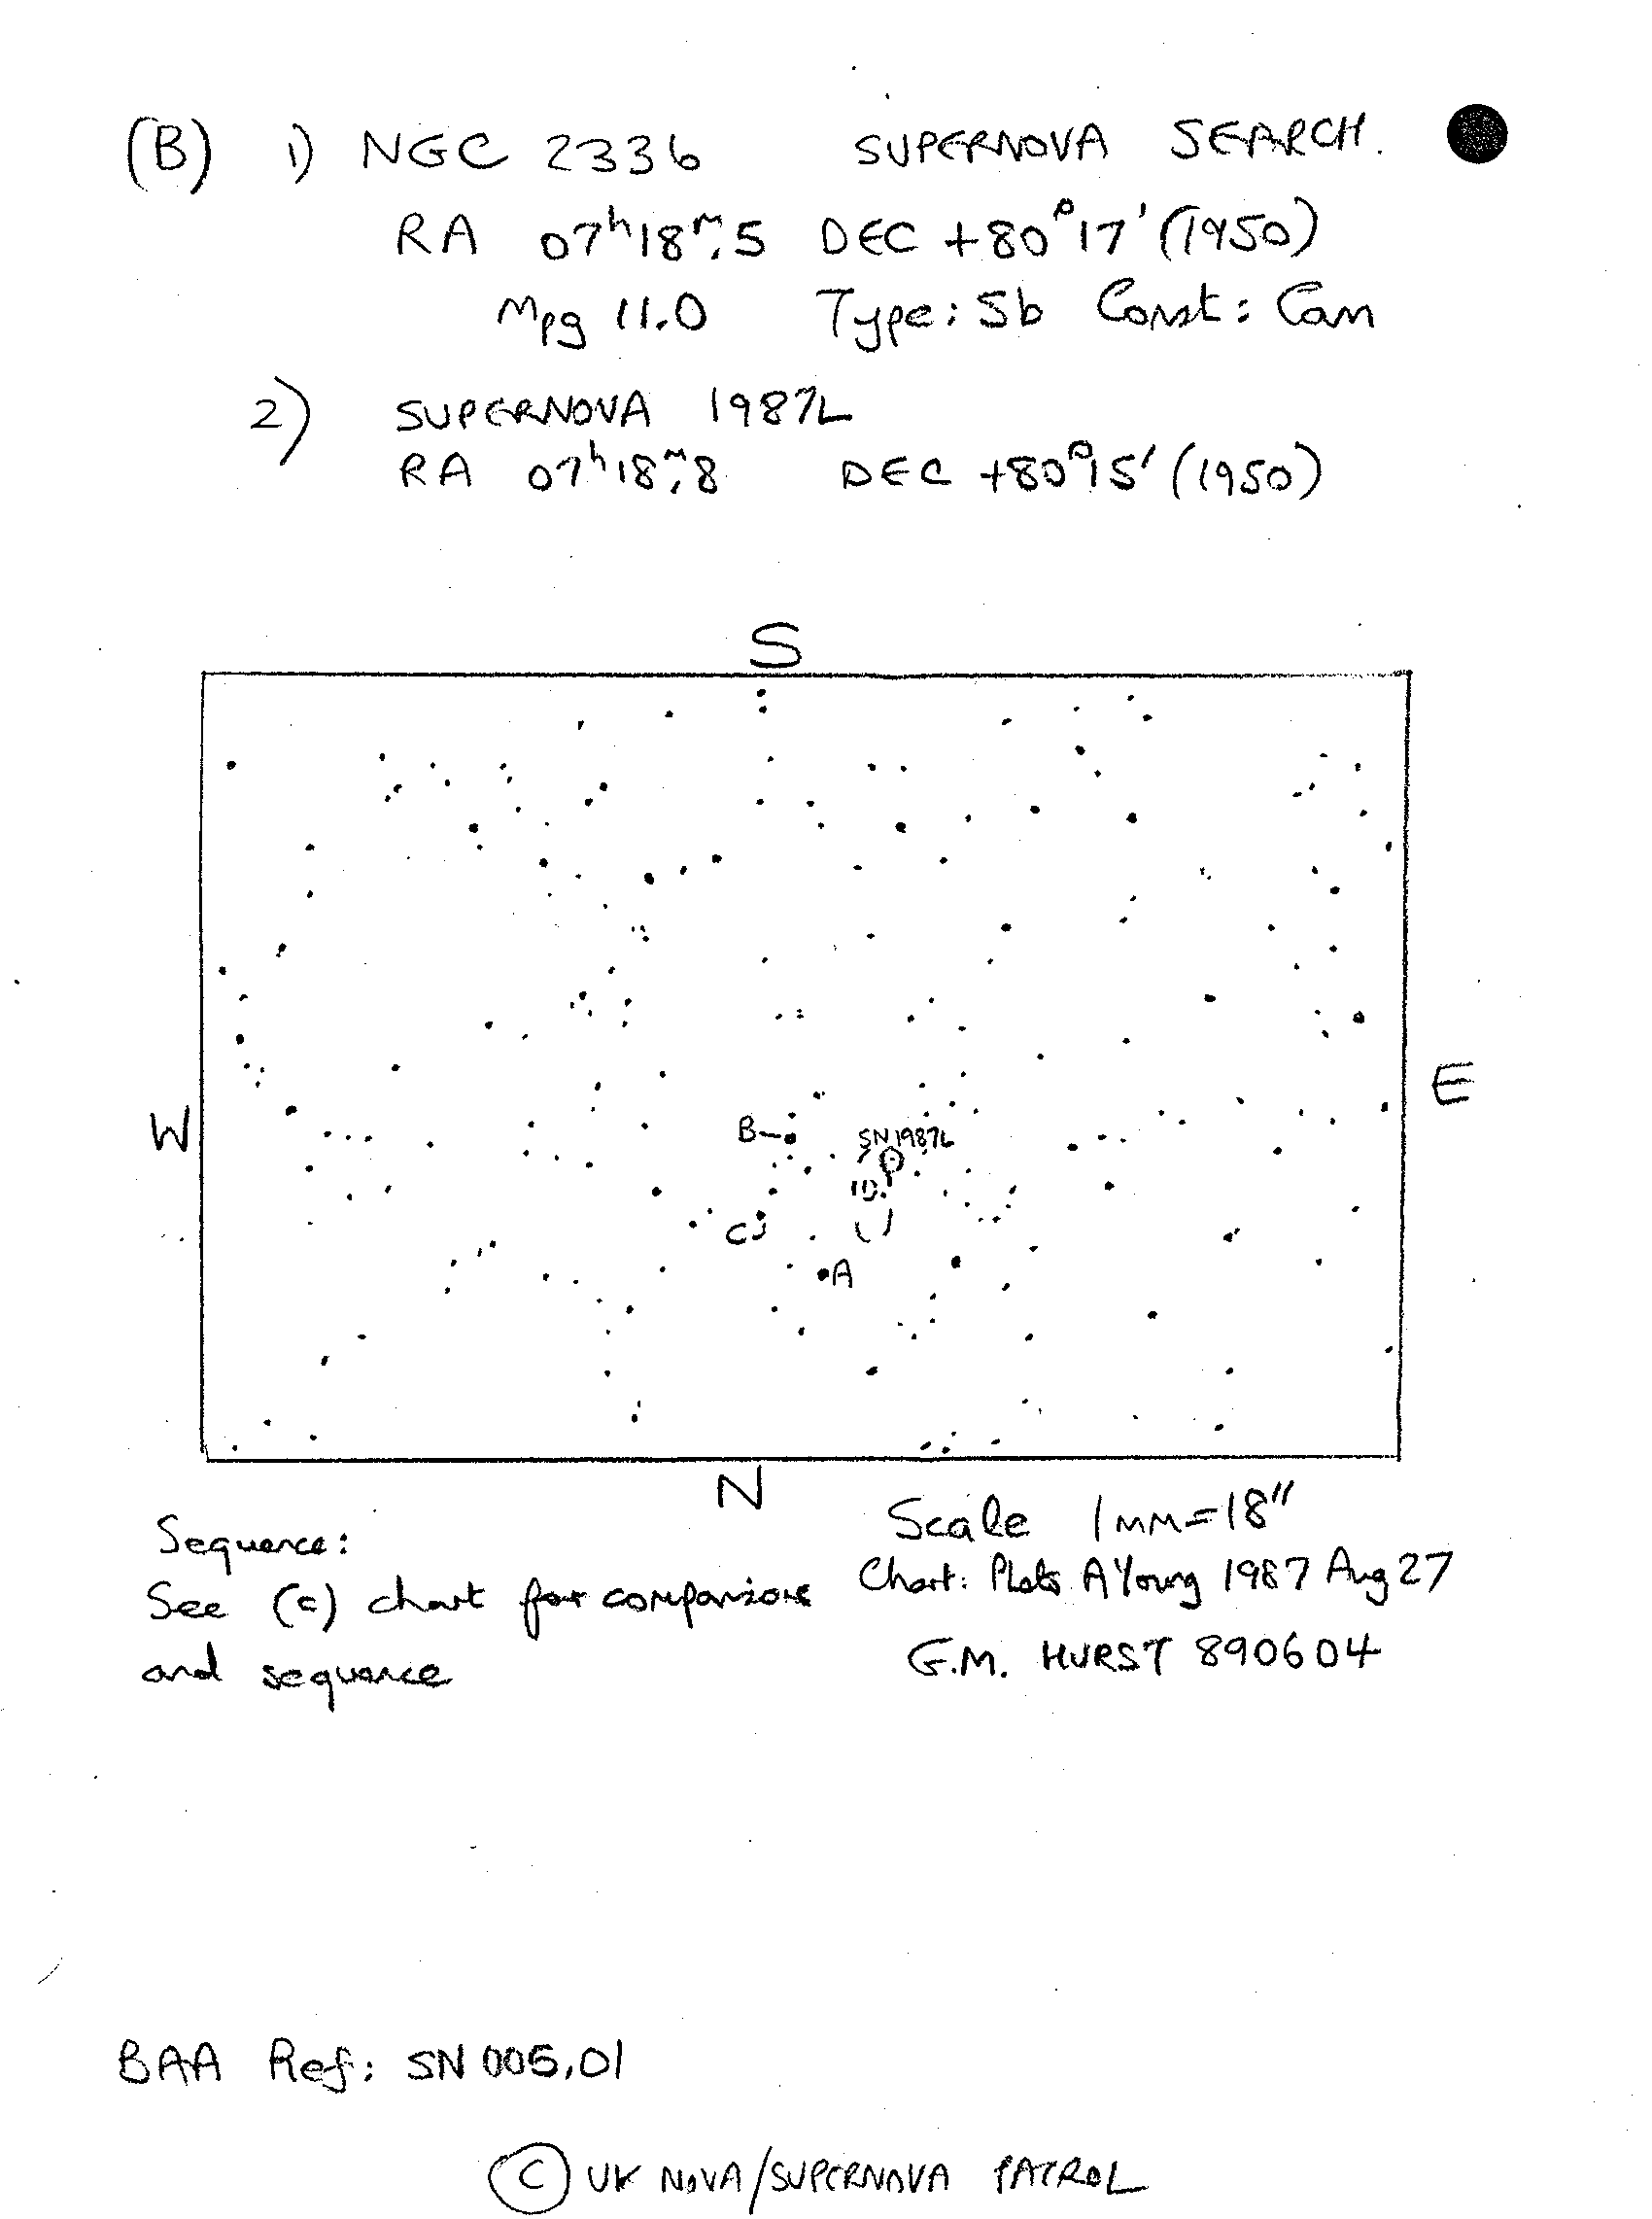 (B) 1) NGC 2336 SUPERNOVA SEARCH.
RA 07ʰ18ᵐ.5 DEC +80°17' (1950)
Mpg 11.0 Type: Sb Const: Cam
2) SUPERNOVA 1987L
RA 07ʰ18ᵐ.8 DEC +80°15' (1950)
S
W
E
B
SN1987L
C
A
N
Scale 1MM=18"
Sequence:
Chart: Plots A Young 1987 Aug 27
See (c) chart for comparisons
G.M. HURST 890604
and sequence
BAA Ref: SN 005.01
© UK NOVA/SUPERNOVA PATROL